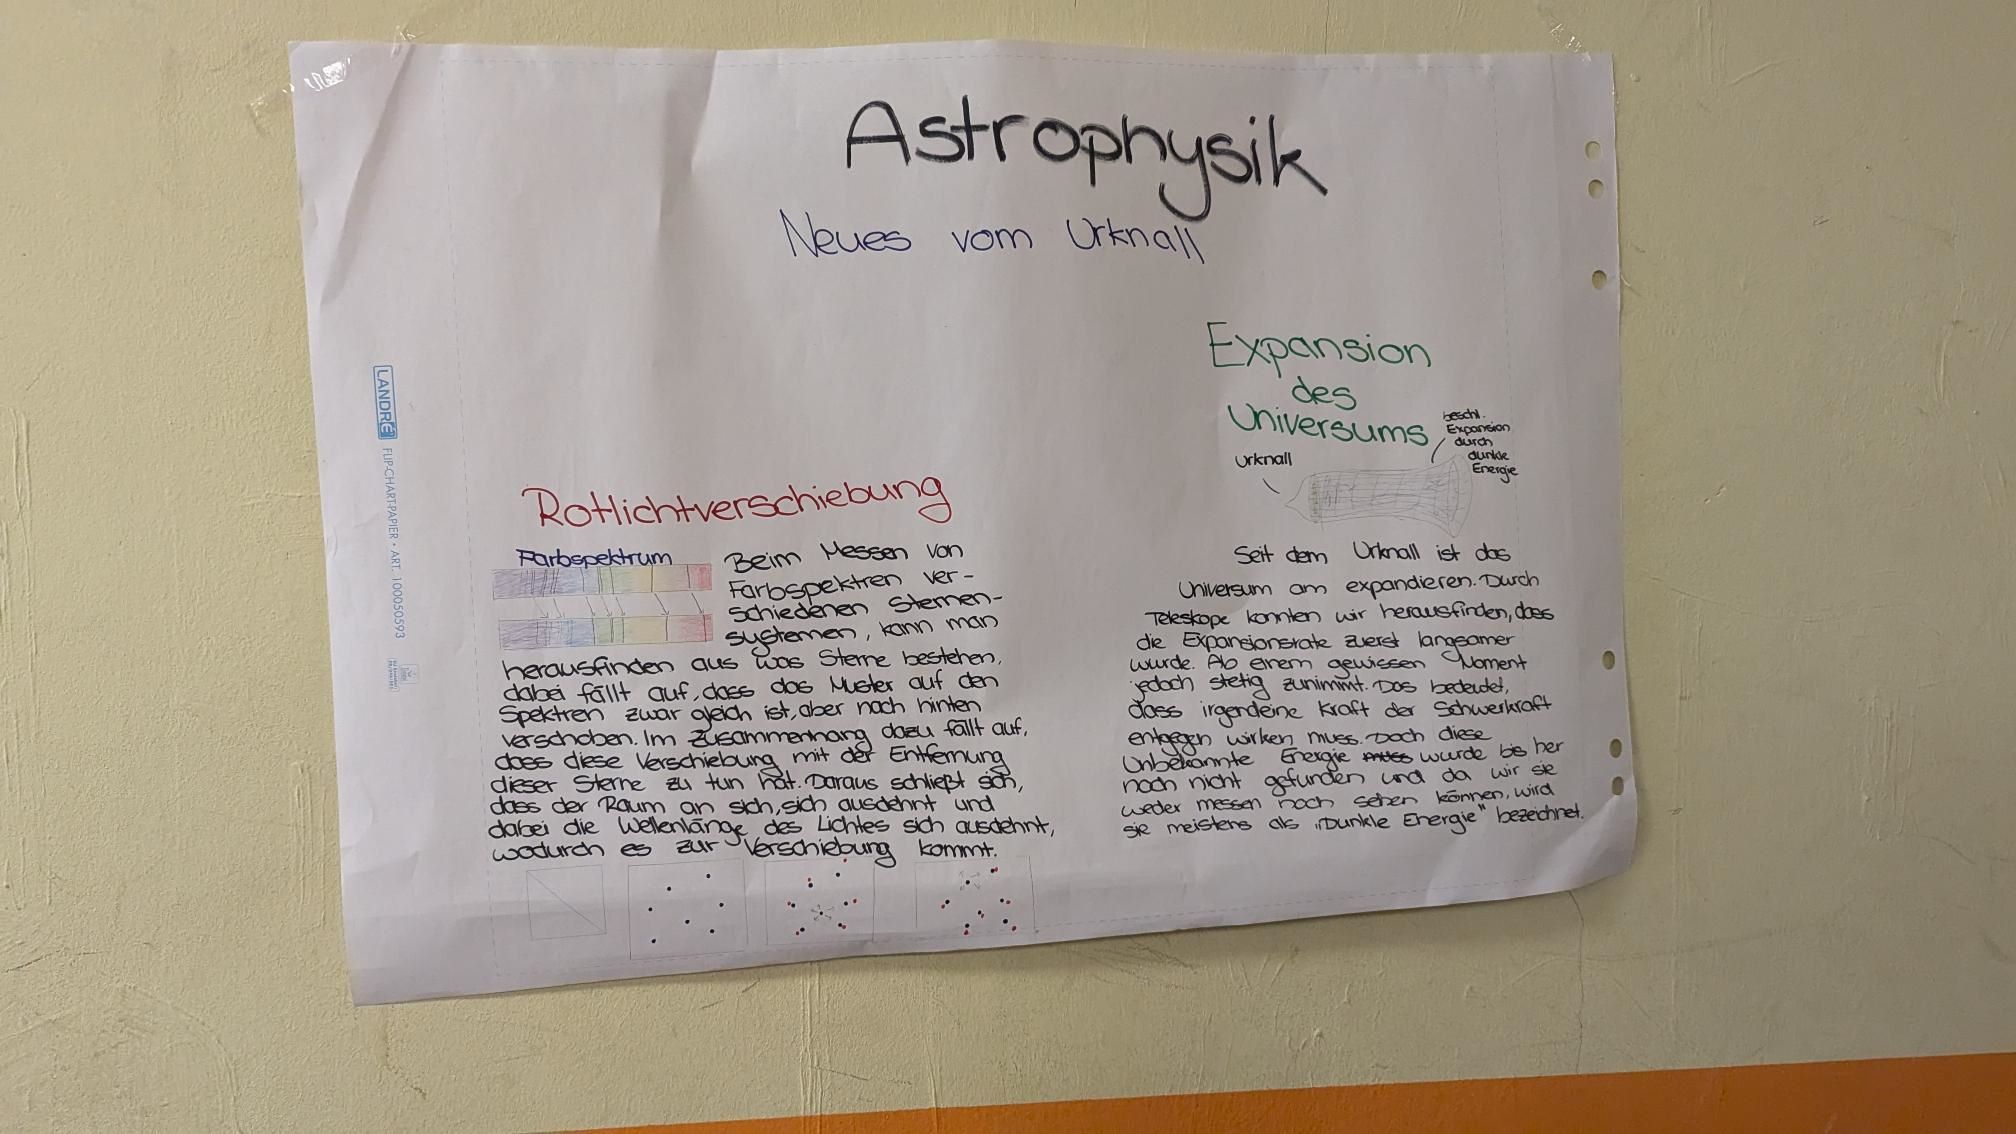 Astrophysik
Neues vom Urknall
LANDRÉ
FLIP-CHART-PAPIER • ART. 100050593
Rotlichtverschiebung
Farbspektrum
Beim Messen von
Farbspektren ver-
schiedenen Sternen-
systemen, kann man
herausfinden aus was Sterne bestehen,
dabei fällt auf, dass das Muster auf den
Spektren zwar gleich ist, aber nach hinten
verschoben. Im Zusammenhang dazu fällt auf,
dass diese Verschiebung mit der Entfernung
dieser Sterne zu tun hat. Daraus schließt sich,
dass der Raum an sich, sich ausdehnt und
dabei die Wellenlänge des Lichtes sich ausdehnt,
wodurch es zur Verschiebung kommt.
Expansion
des
Universums
Urknall
beschl.
Expansion
durch
dunkle
Energie
Seit dem Urknall ist das
Universum am expandieren. Durch
Teleskope konnten wir herausfinden, dass
die Expansionsrate zuerst langsamer
wurde. Ab einem gewissen Moment
jedoch stetig zunimmt. Das bedeutet,
dass irgendeine Kraft der Schwerkraft
entgegen wirken muss. Doch diese
Unbekannte Energie muss wurde bis her
noch nicht gefunden und da wir sie
weder messen noch sehen können, wird
sie meistens als „Dunkle Energie" bezeichnet.